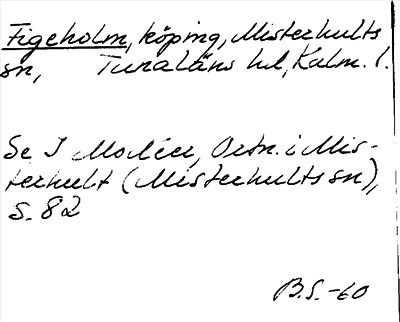 Figeholm, köping, Misterhults
sn, Tunaläns hd, Kalm. l.
Se I Modéer, Ortn. i Mis-
terhult (Misterhults sn),
s. 82
B.S.-60